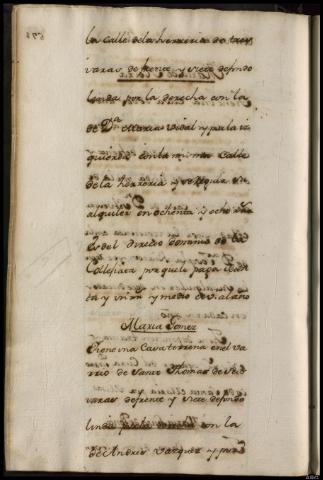 la calle de la herreria de tres
varas de frente y siete de fondo
linda por la derecha con la
de Dª Maria Vidal y por la iz
quierda con la misma calle
de la herreria y
alquiler en ochenta y ocho
es del directo dominio de la
Collegiata por que le paga
ta y un rr y medio de vellon
Maria Gomez
Tiene una Casa terrena en el va
rrio de Santo Thomas de seis
varas de frente y siete de fondo
linda por la con la
de Andres Vazquez y por